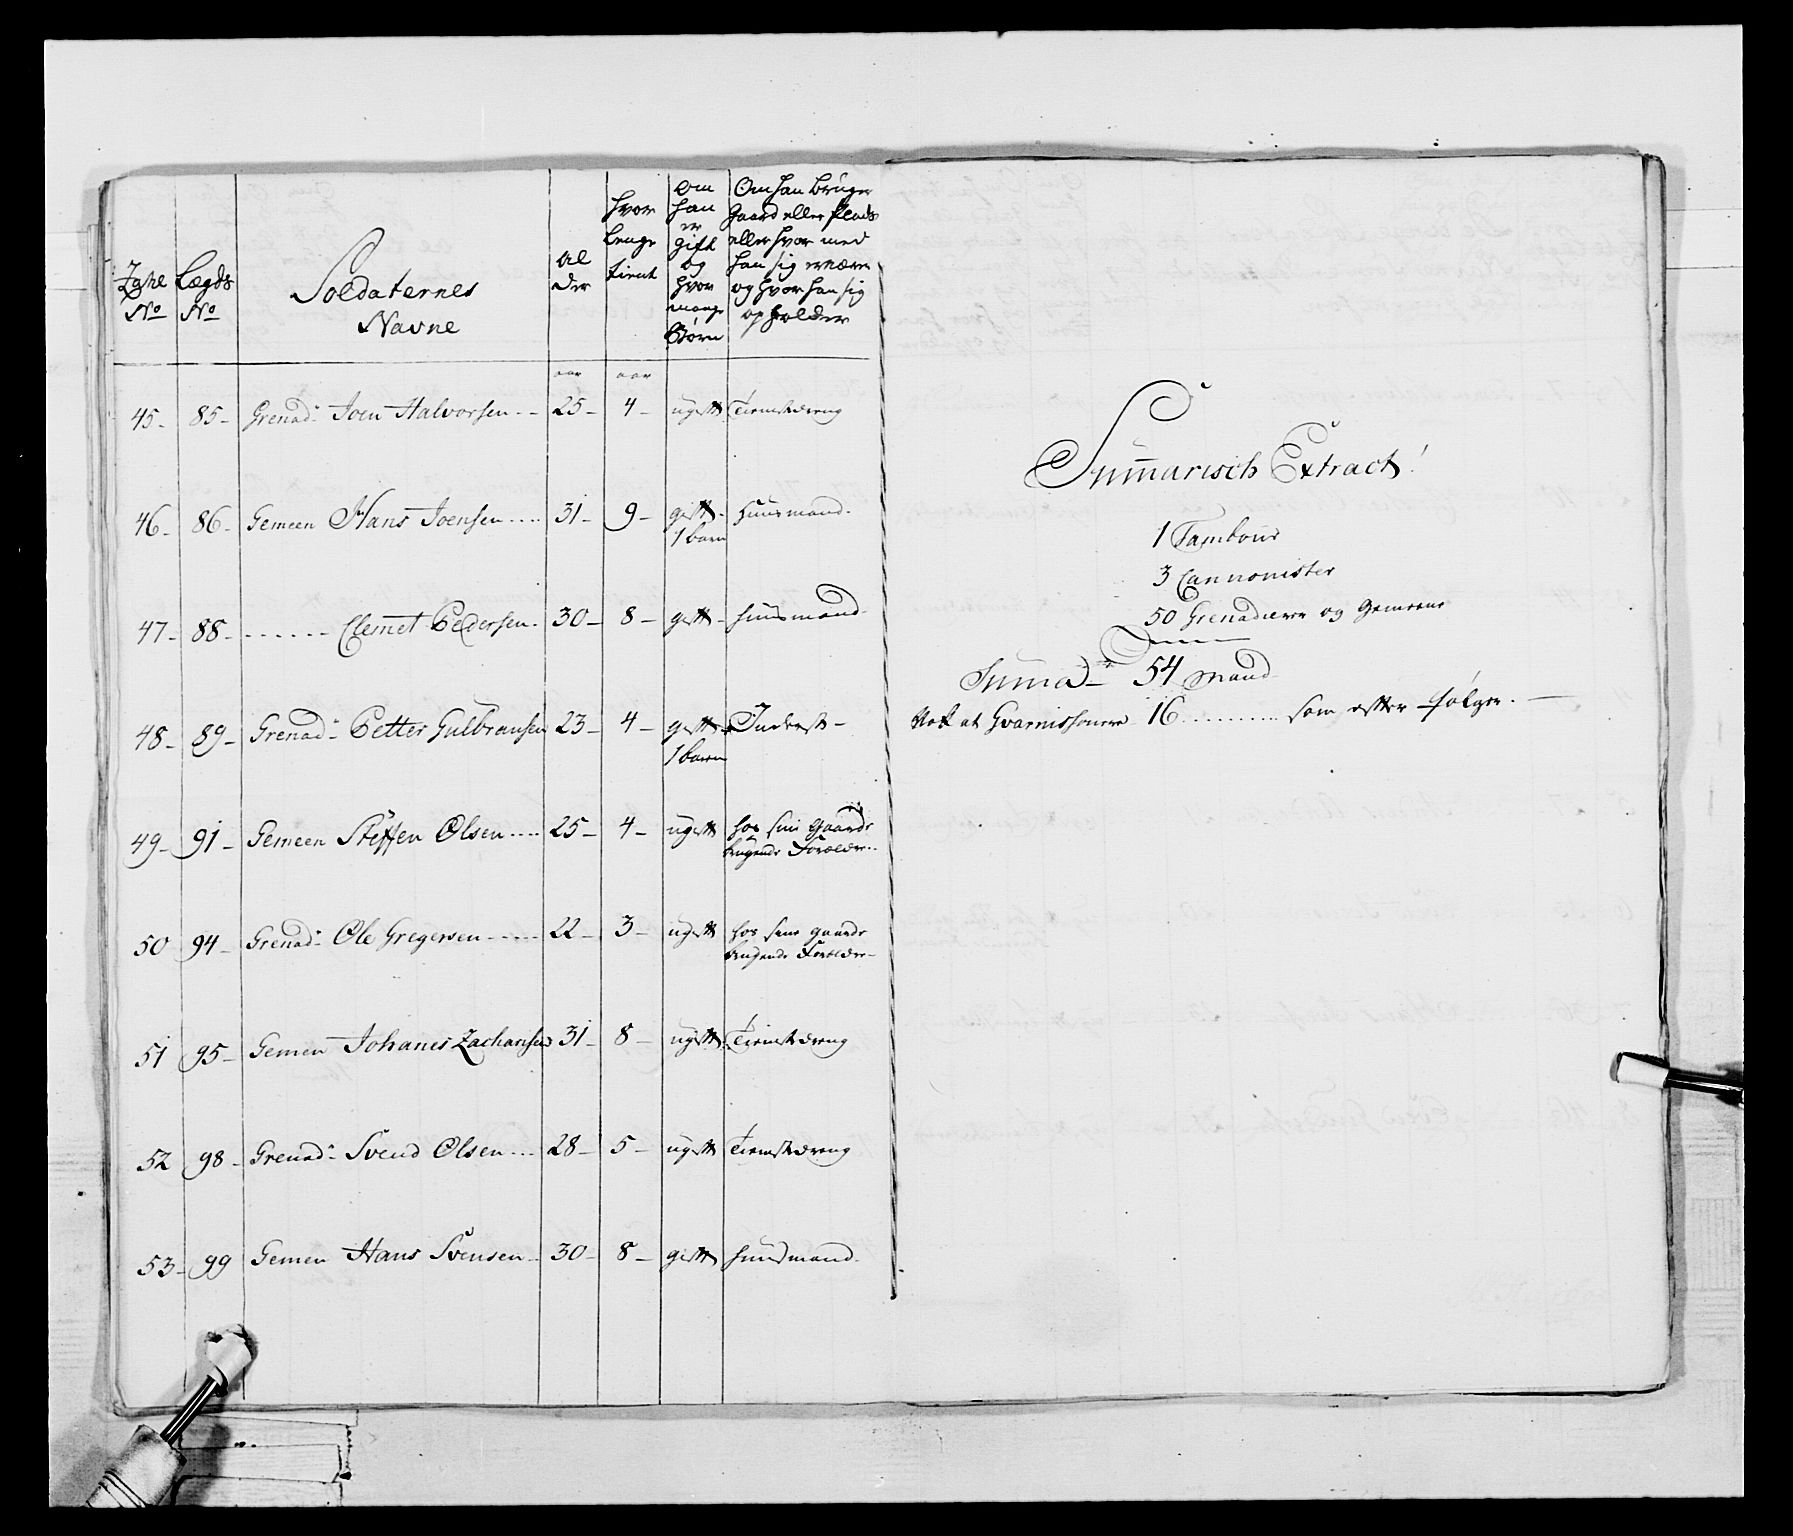 Zahl No
Lægds No
Soldaternes Navne
Al der
hvor lenge tient
Om han er gift og hvor mange Børn
Om han bruger
Gaard eller Plads
eller hvor med
han sig ernærer
og hvor han sig
opholder
aar aar
45- 85- Grenad: Joen Halvorsen -- 25- 4- ugift Tienistdreng
46- 86- Gemeen Hans Joensen ---- 31- 9- gift- huusmand-
1 barn
47- 88- ------ Clemet Pedersen- 30- 8- gift- huusmand-
48- 89- Grenad: Petter Gulbransen 23- 4- gift Inderst-
1 barn
49- 91- Gemeen Steffen Olsen ---- 25- 4- ugift hos sine Gaard
brugende Forældre-
50 94- Grenad: Ole Gregersen ----- 22- 3- ugift hos sine gaard
brugende Forældre-
51 95- Gemen Johanes Zachariasen 31- 8- ugift Tienistdreng
52 98- Grenad: Svend Olsen --- 28- 5- ugift Tienistdreng
53- 99 Gemen Hans Svensen- 30- 8- gift huusmand-
Summarisch Extract!
1 Tambour
3 Cannonister
50 Grenaderer og Gemeene
Summa- 54 Mand
Nok at Gvarnissonere- 16 ---------- som efter følger.-